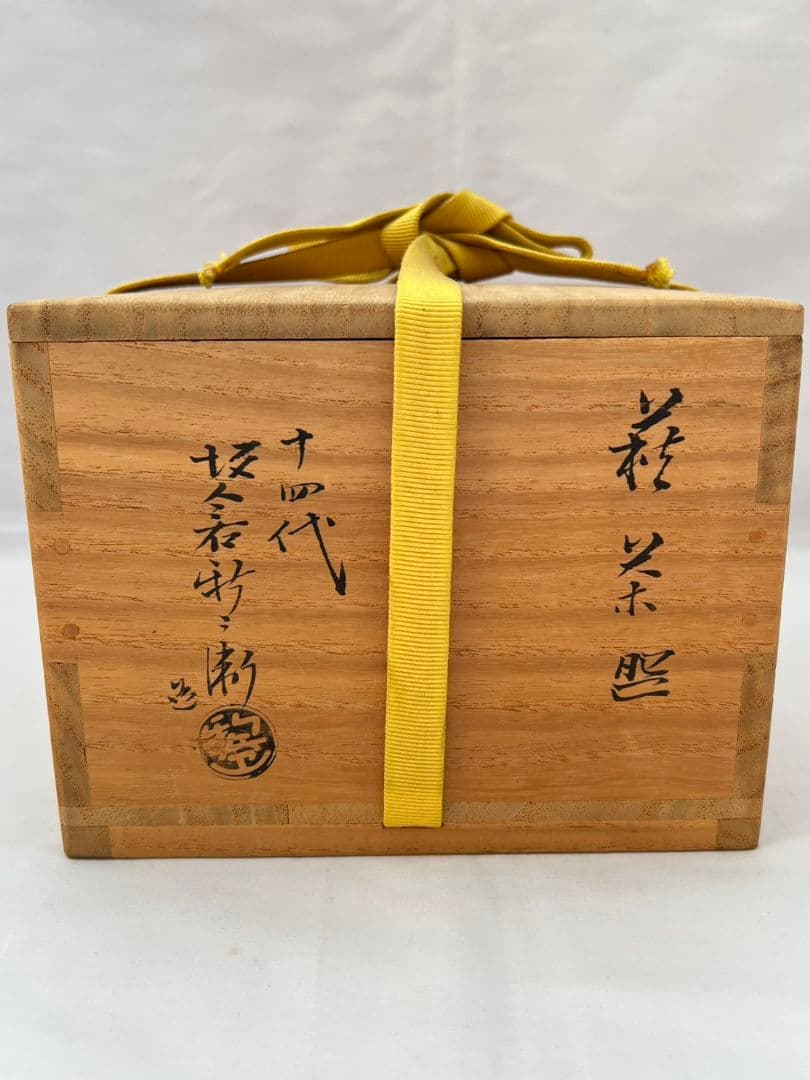 萩茶盌
十四代
坂倉新兵衛
造